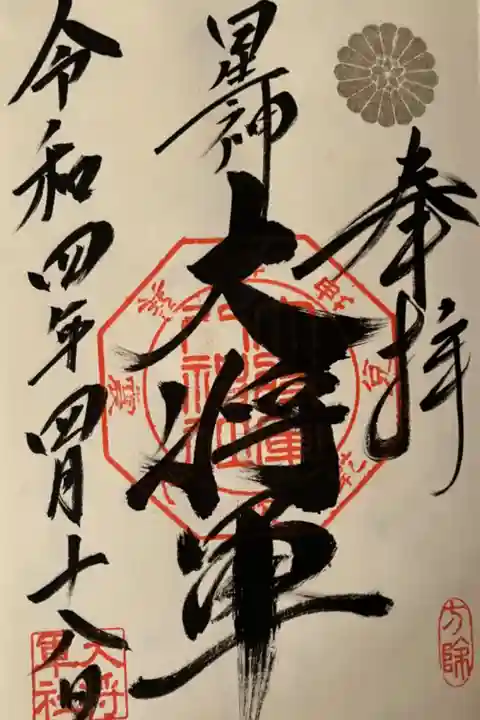 奉拝
星神
大将軍
令和四年四月十八日
方除
大将軍社